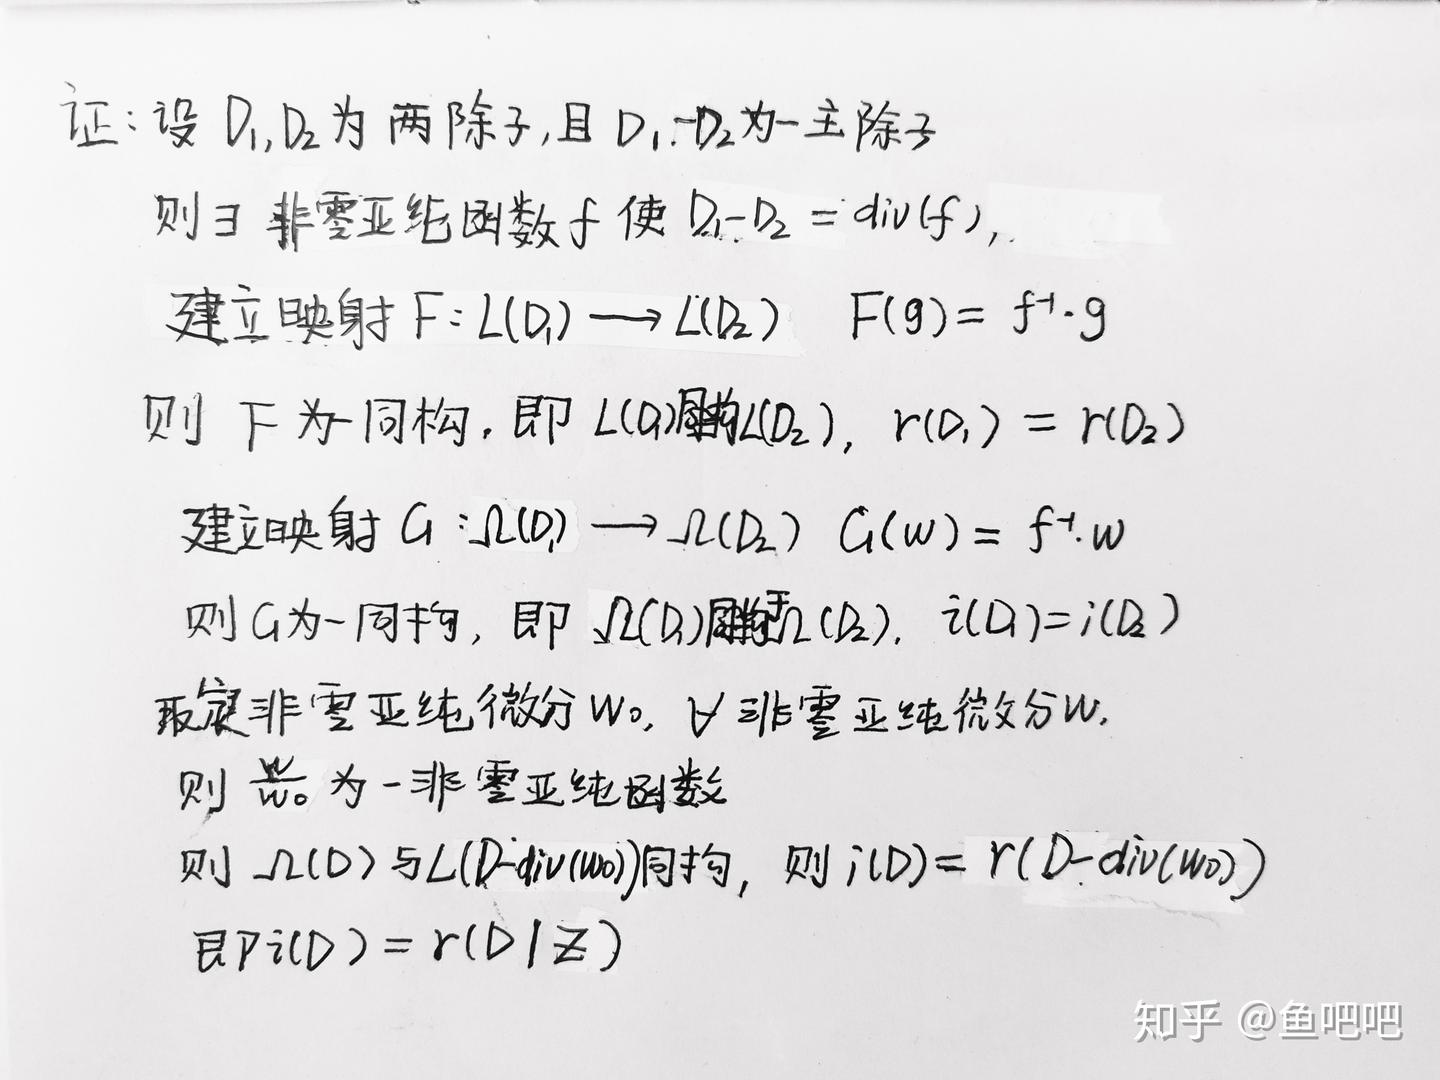 证:设 D₁,D₂为两除子,且 D₁-D₂为一主除子
则∃ 非零亚纯函数f 使 D₁-D₂ = div(f),
建立映射 F: L(D₁) ⟶ L(D₂) F(g) = f⁻¹·g
则 F 为一同构, 即 L(D₁)同构L(D₂), r(D₁) = r(D₂)
建立映射 G : Ω(D₁) ⟶ Ω(D₂) G(w) = f⁻¹·w
则G为一同构, 即 Ω(D₁)同构于Ω(D₂), i(D₁)=i(D₂)
取定非零亚纯微分w₀, ∀ 非零亚纯微分w,
则 w/w₀ 为一非零亚纯函数
则 Ω(D)与L(D-div(w₀))同构, 则 i(D) = r(D-div(w₀))
即i(D) = r(D / Z)
知乎 @鱼吧吧